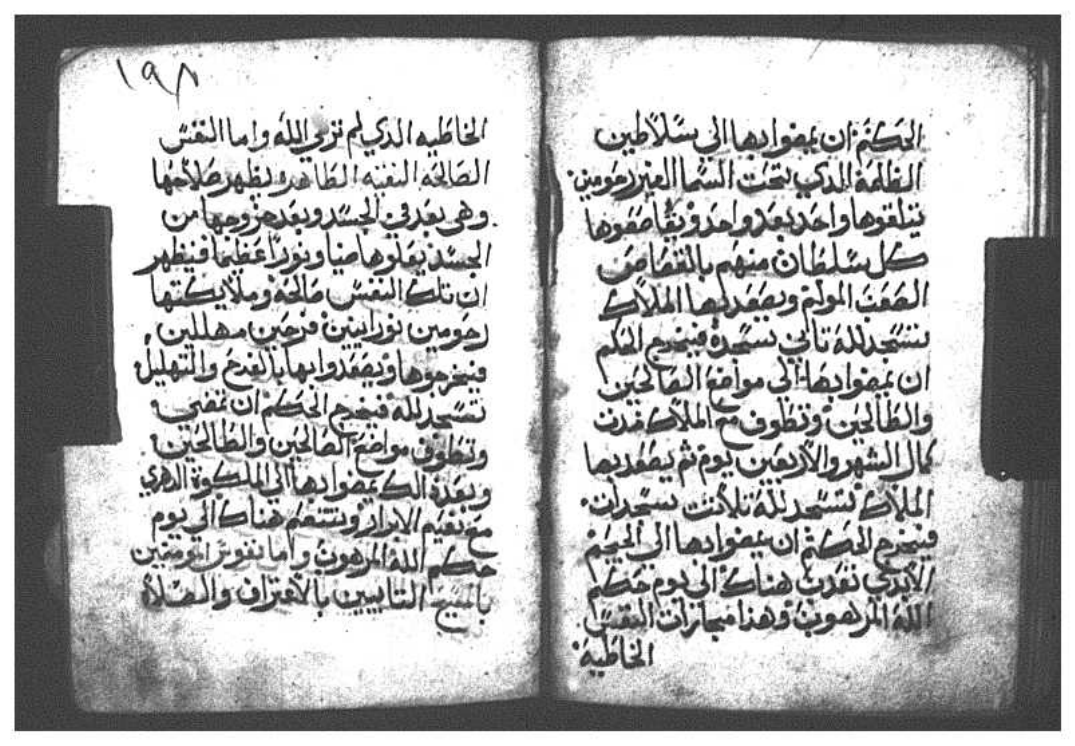 الحكم ان يمضوا بها الي سلاطين
الظلمة الدي تحت السما الغير رحومين
تيلقوها واحد بعد واحد ويقاصصوها
كل سلطان منهم بالقصاص
الصعب المولم ويصعد بها الملاك
تسجد لله تاني سجدة فيخرج الحكم
ان يمضوا بها الي مواضع الصالحين
والطالحين وتطوف مع الملاك مدت
كمال الشهر والاربعين يوم تم يصعد بها
الملاك تسجد لله تلاتت سجدات
فيخرج الحكم ان يمضوا بها الي الجحيم
الابدي تعدب هناك الي يوم حكم
الله المرهوب وهدا مجازات النفس
الخاطية
١٩٨
الخاطيه الدي لم ترضي الله واما النفس
الصالحه النقيه الطاهره يظهر صلاحها
وهي بعد في الجسد وبعد خروجها من
الجسد يعلوها ضيا ونورا عظيما فيظهر
ان تلك النفس صالحه وملايكتها
رحومين نورانيين فرحين مهللين
فيخرجوها ويصعدوا بها بالفرح والتهليل
تسجد لله فيخرج الحكم ان تمضي
وتطوف مواضع الصالحين والطالحين
وبعد دالك يمضوا بها الي الملكوة الدهري
مع نعيم الابرار وتتنعم هناك الي يوم
حكم الله المرهوب واما نفوس المومنين
بالمسيح التايبين بالاعتراف والصلاه